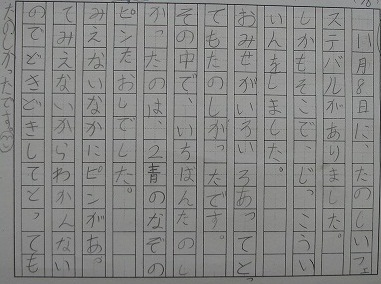 11月8日に、たのしいフェ
ステバルがありました。
しかもそこで、じっこうい
いんをしました。
おみせがいろいろあってと
てもたのしかったです。
その中で、いちばんたのし
かったのは、2青のなぞの
ピンたおしでした。
みえないなかにピンがあっ
てみえないからわかんない
のでどきどきしてとっても
たのしかったです。